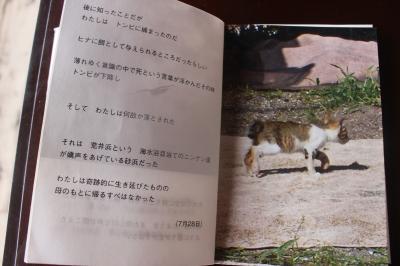 後に知ったことだが
わたしは　トンビに捕まったのだ
ヒナに餌として与えられるところだったらしい
薄れゆく意識の中で死という言葉が浮かんだその時
トンビが下降し
そして　わたしは何故か落とされた
それは　荒井浜という　海水浴目当てのニンゲン達
が嬌声をあげている砂浜だった
わたしは奇跡的に生き延びたものの
母のもとに帰るすべはなかった
(7月28日)